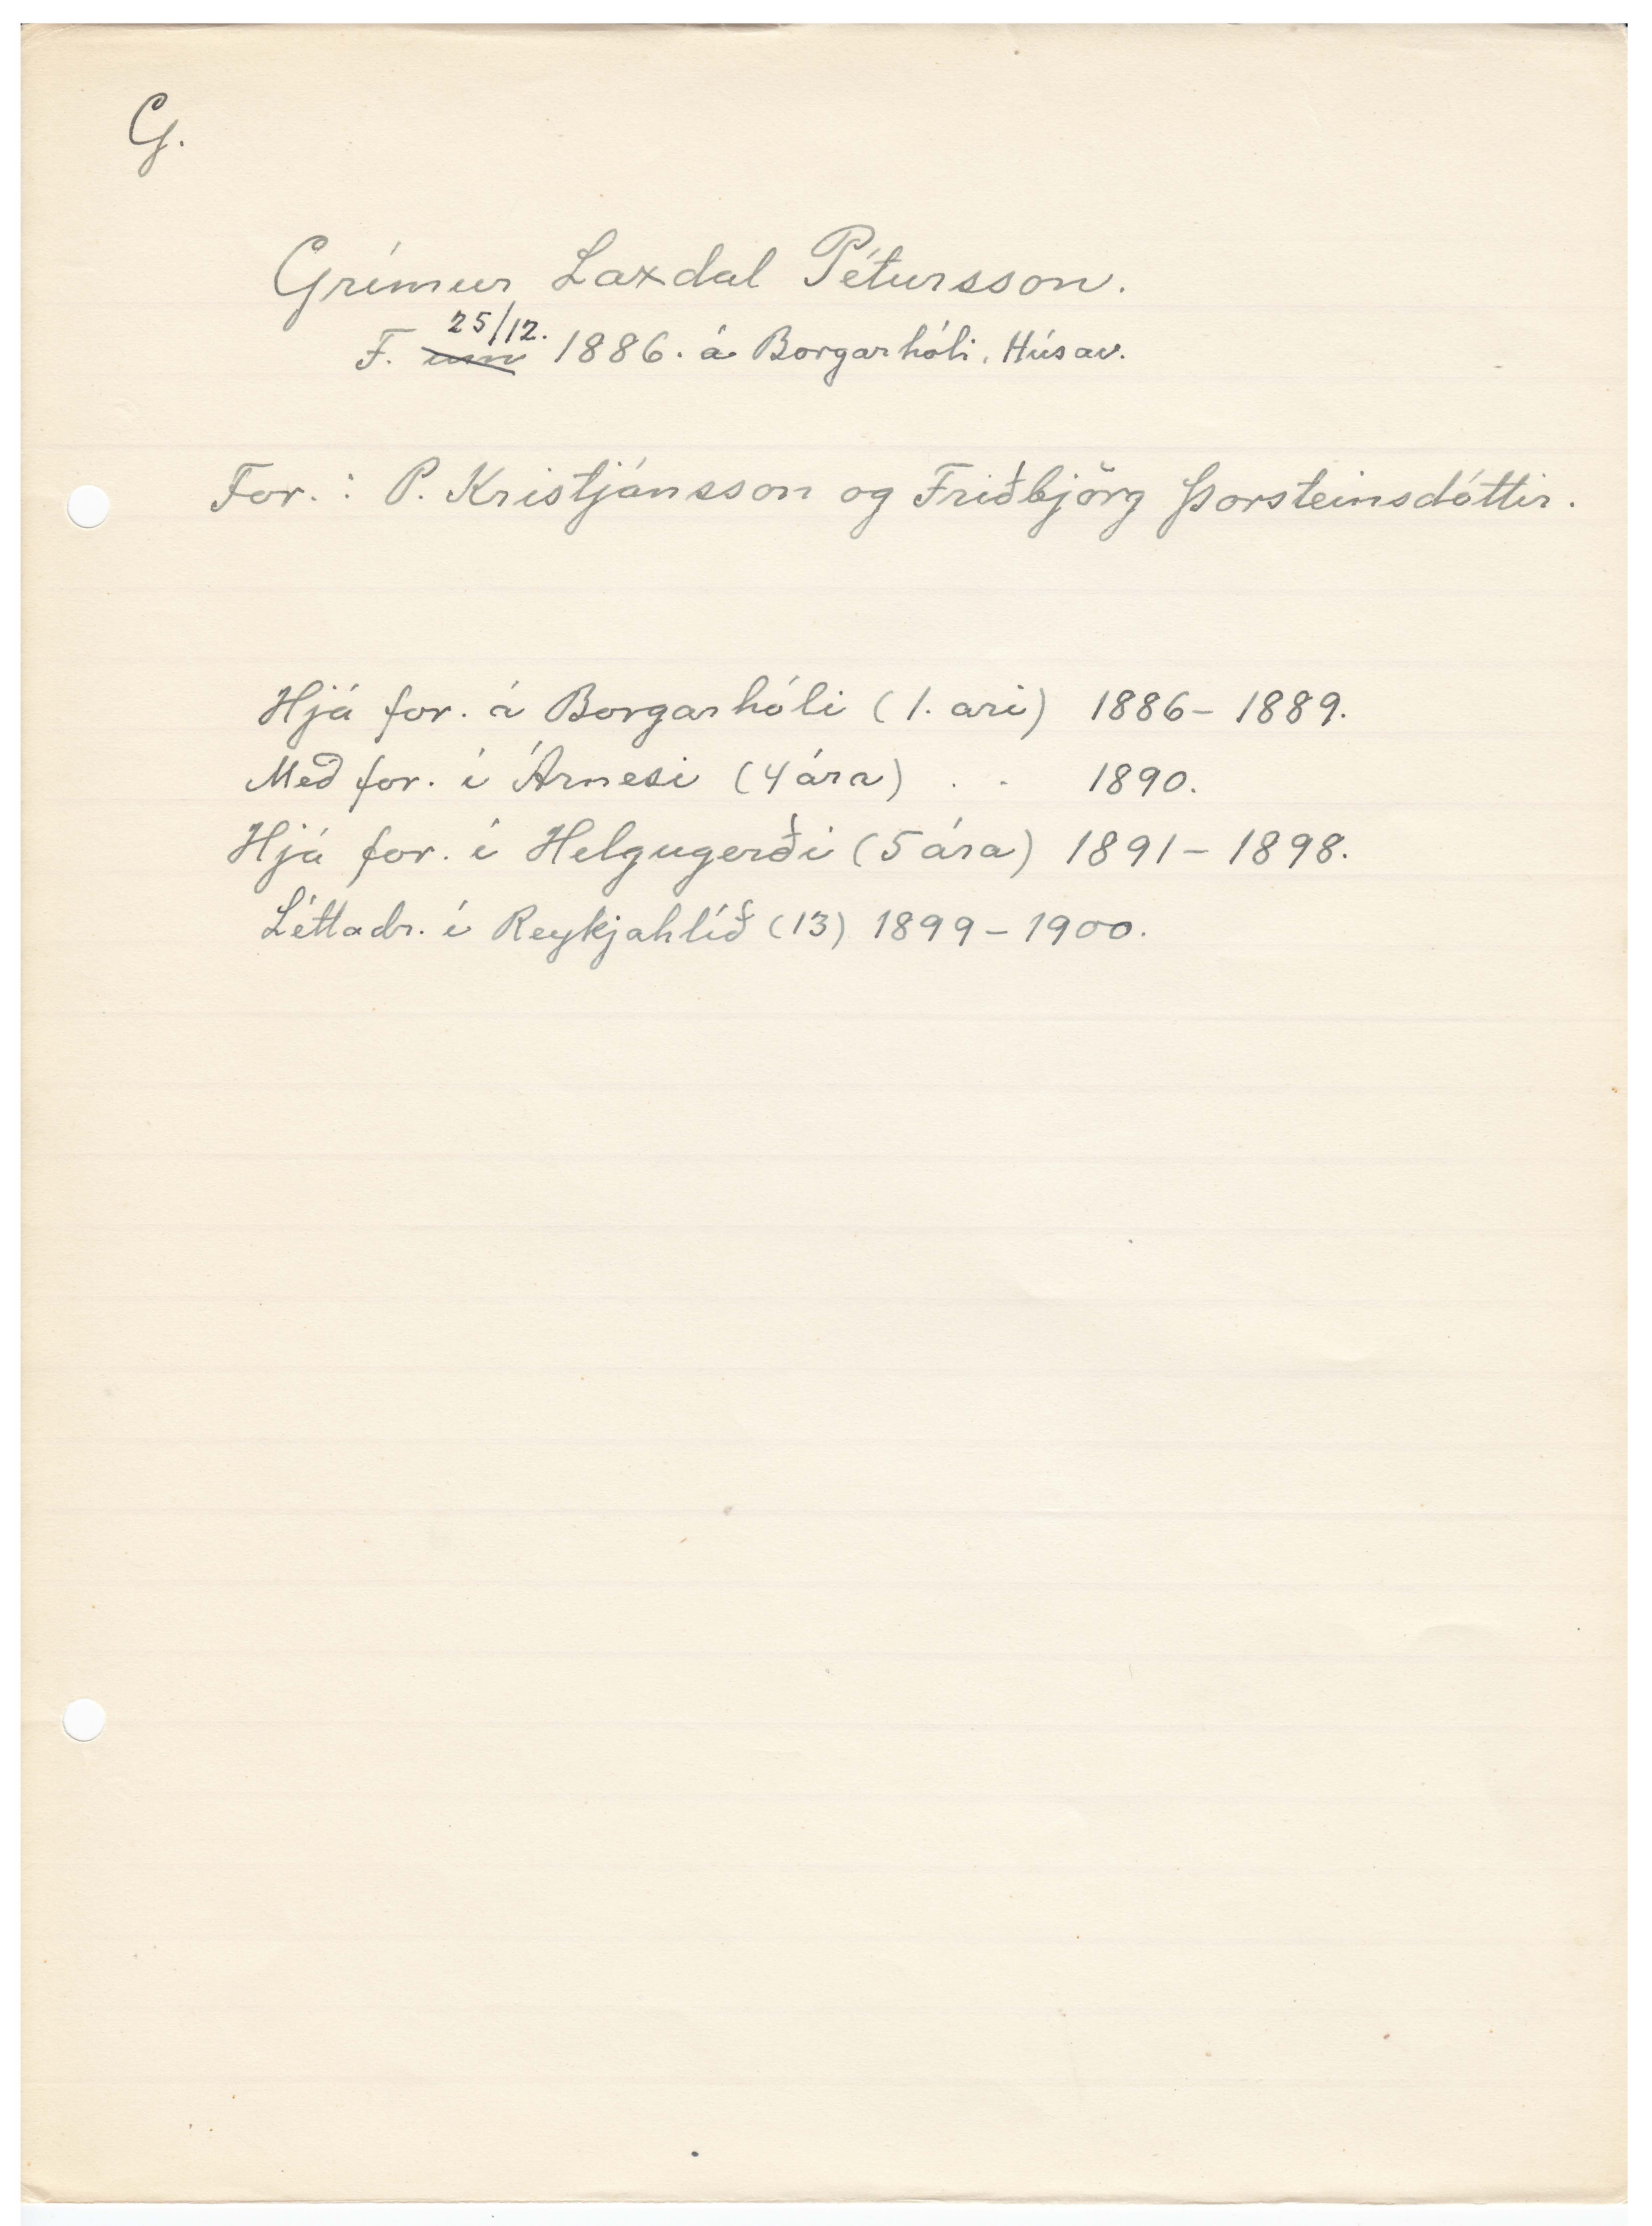 G.
Grímur Laxdal Pétursson.
25/12.
F. um 1886. á Borgarhóli, Húsav.
For.: P. Kristjánsson og Friðbjörg Þorsteinsdóttir.
Hjá for. á Borgarhóli (1. ári) 1886 - 1889.
Með for. í Árnesi (4 ára) . . 1890.
Hjá for. í Helgugerði (5 ára) 1891 - 1898.
Léttadr. í Reykjahlíð (13) 1899 - 1900.